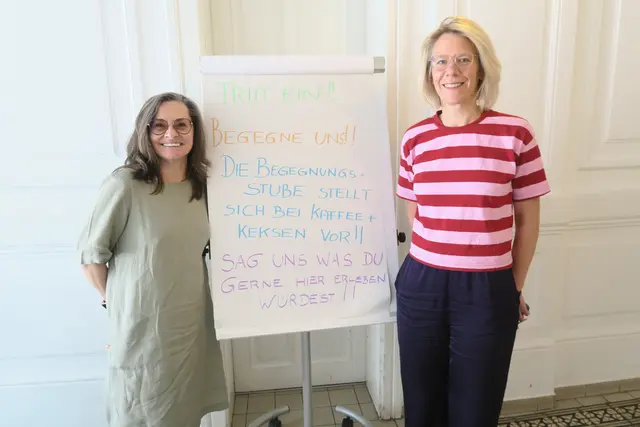 TRITT EIN!!
BEGEGNE UNS!!
DIE BEGEGNUNGS-
STUBE STELLT
SICH BEI KAFFEE +
KEKSEN VOR!!
SAG UNS WAS DU
GERNE HIER ERLEBEN
WÜRDEST!!